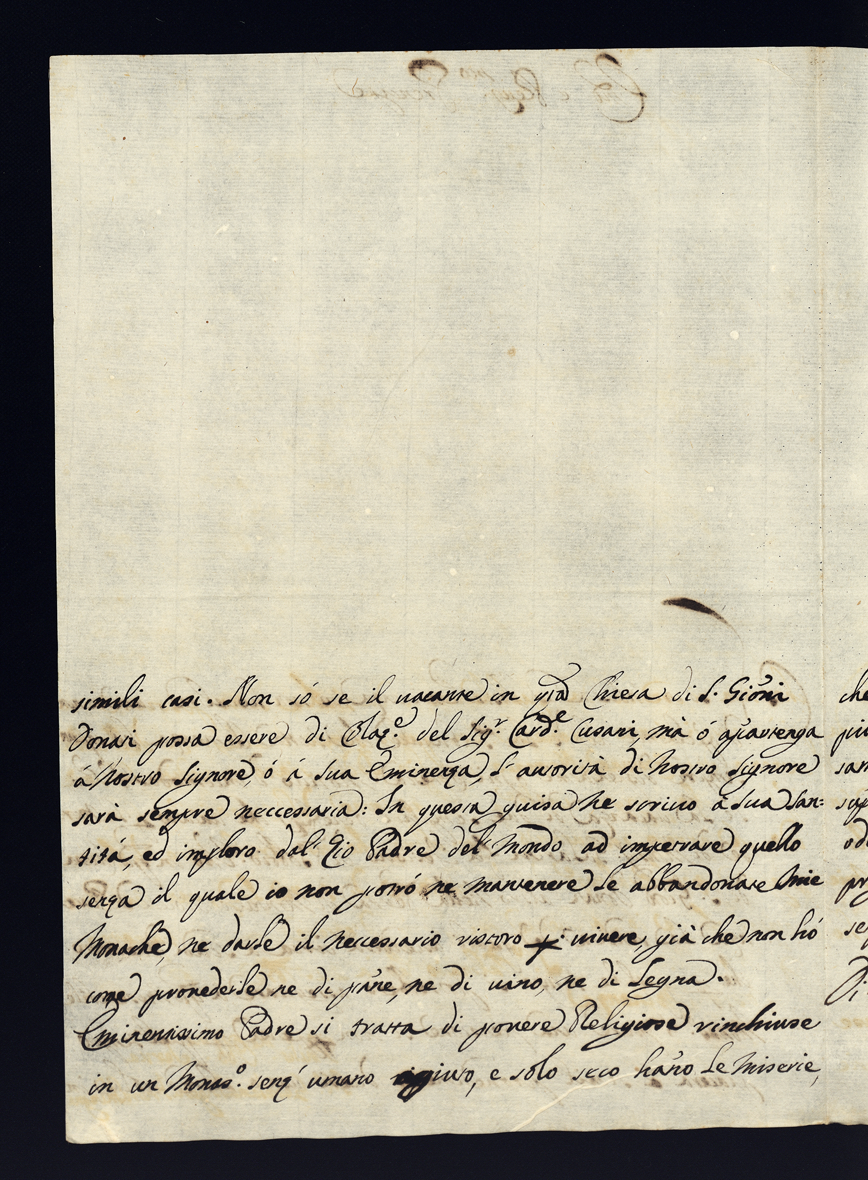 simili casi. Non só se il vacante in qtā Chiesa di S. Gioñi
Donari possa essere di Colaz.e del Sigr. Card.e Cusani, mà ó aspartenga
á Nostro Signore, ó á sua Eminenza, L' autorità di Nostro Signore
sarà sempre neccessaria: In questa guisa ne scrivo a sua San:
titá, ed imploro dal' Pio Padre del Mondo ad impetrare quello
senza il quale io non potró ne mantenere le abbandonate Mie
Monache, ne darle il neccessario ristoro p vivere, già che non hó
come provederle ne di pane, ne di vino, ne di Legna.
Eminentissimo Padre si tratta di povere Religiose rinchiuse
in un Monas.o senz' umano aggiuto, e solo seco hano le Miserie,
che